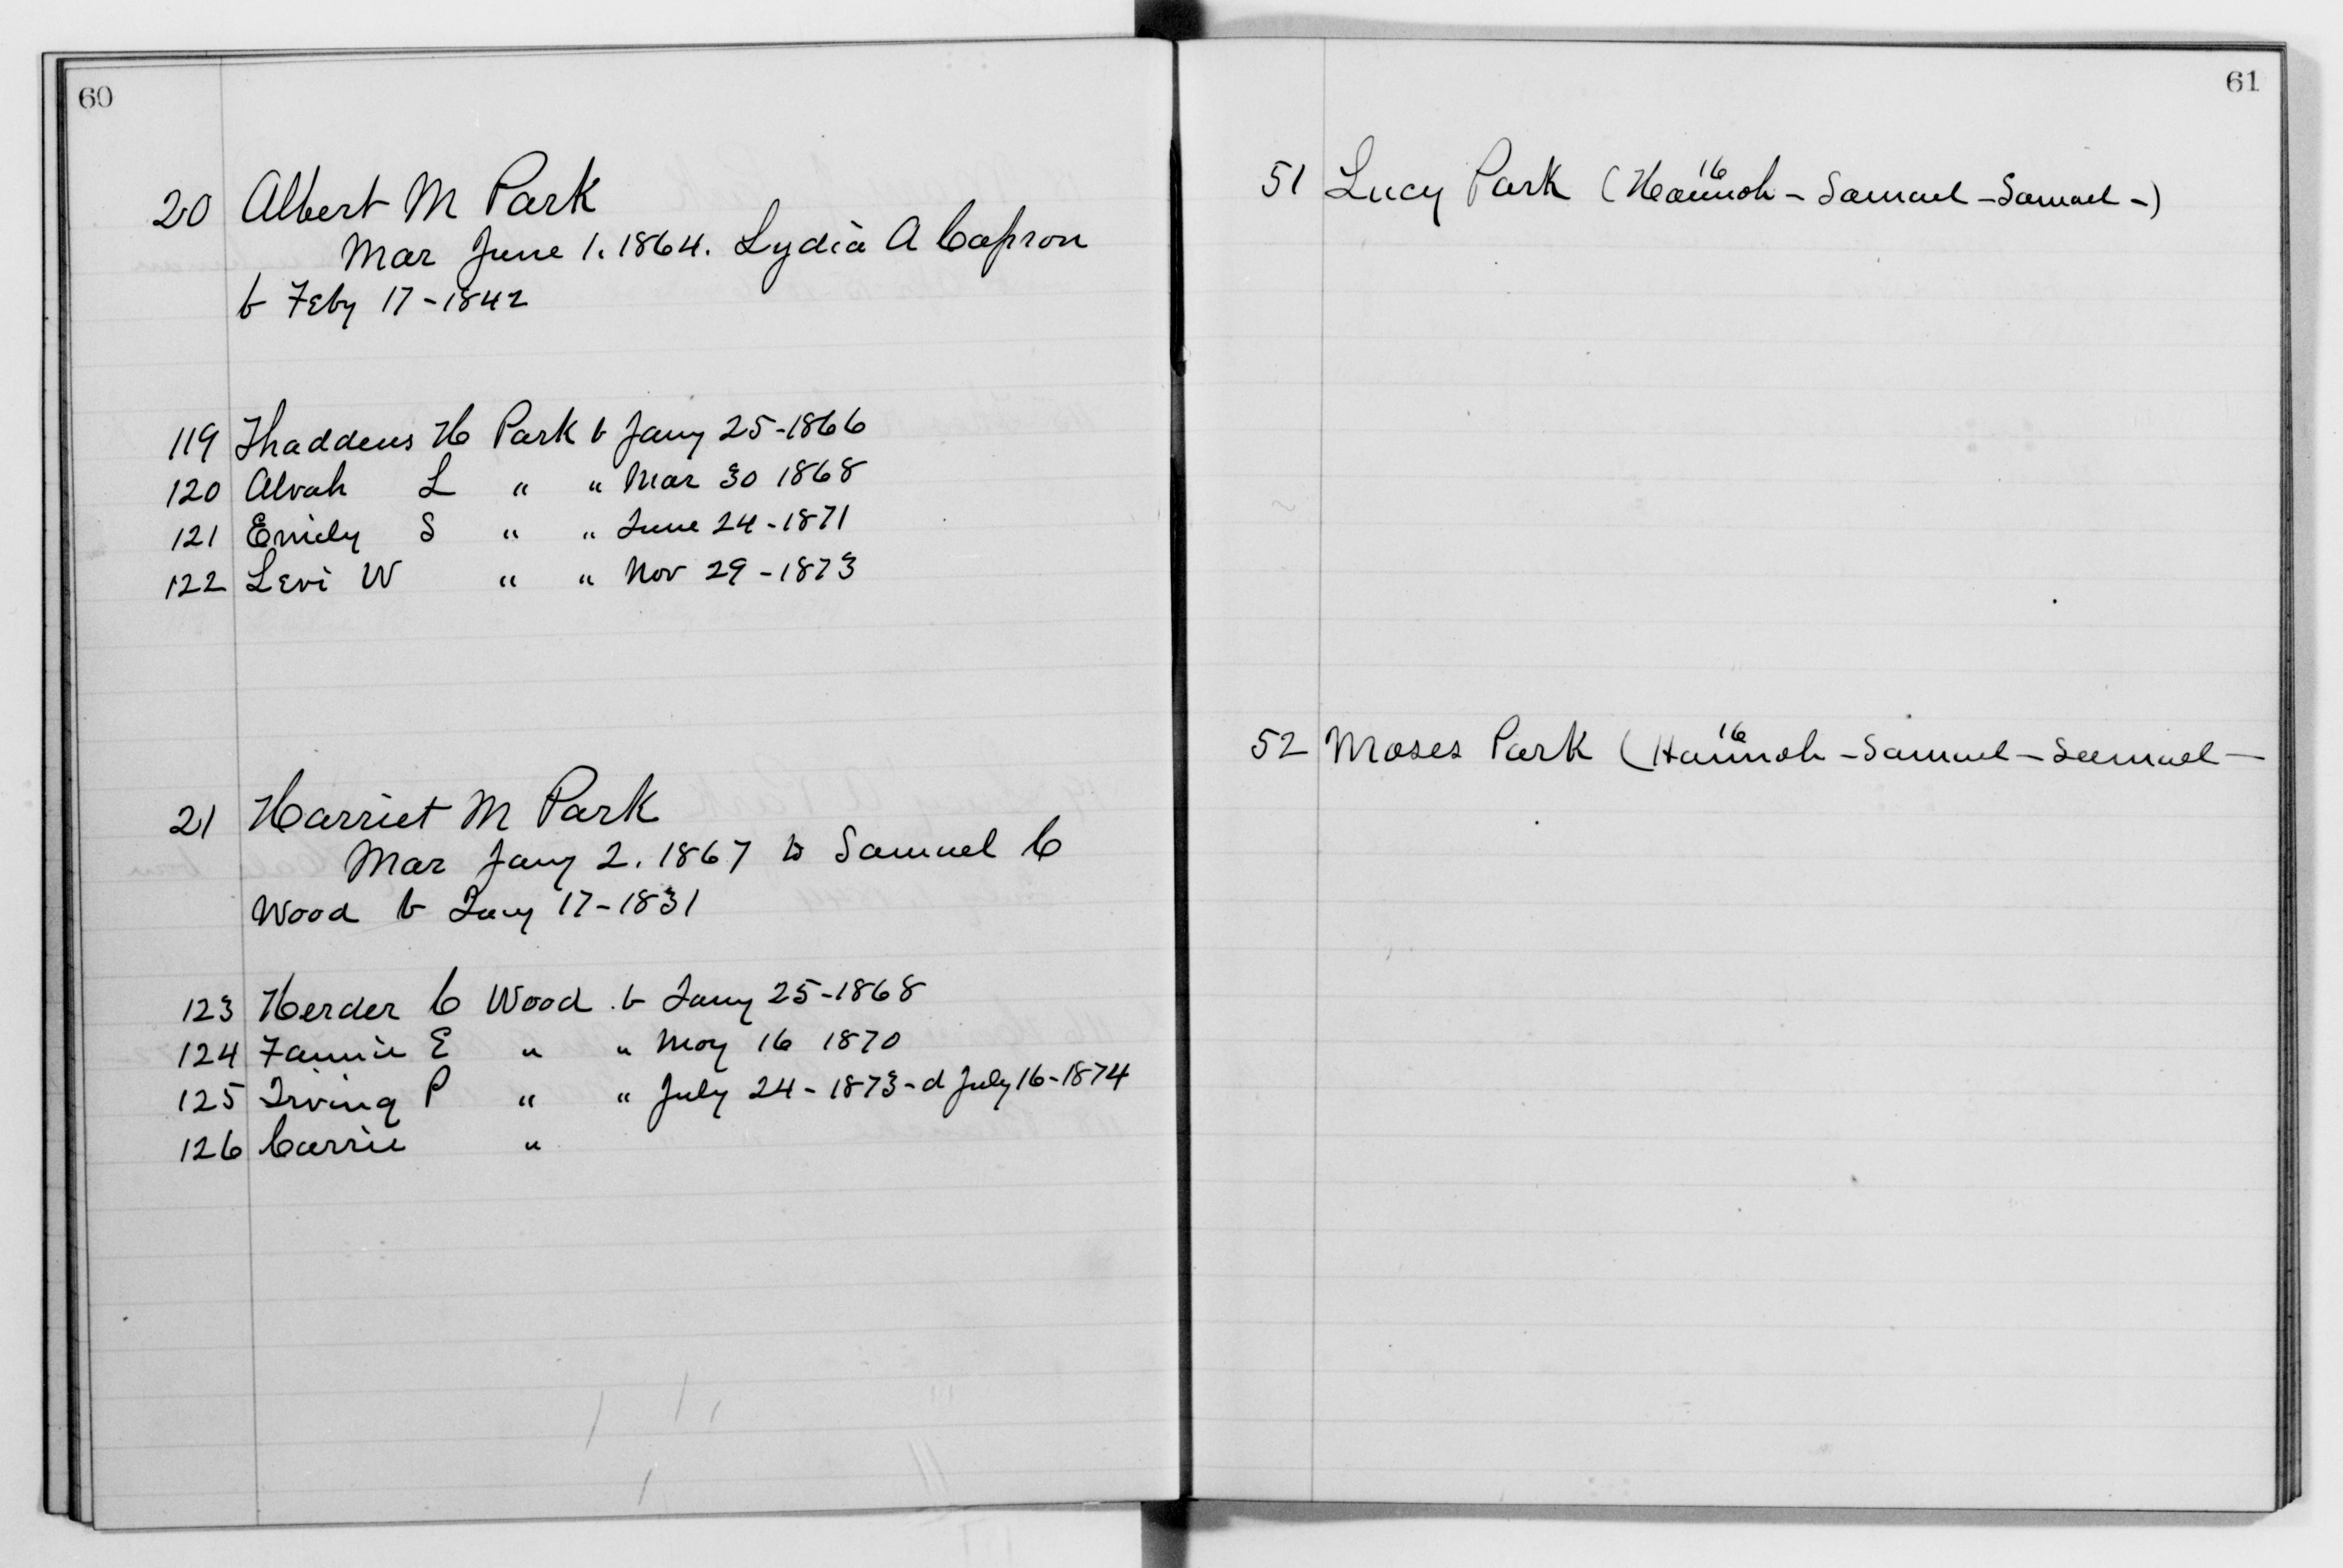 60
20 Albert M Park
Mar June 1. 1864. Lydia A Capron
b Feby 17-1842
119 Thaddeus H Park b Jany 25-1866
120 Alvah L " " Mar 30 1868
121 Emily S " " June 24-1871
122 Levi W " " Nov 29-1873
21 Harriet M Park
Mar Jany 2. 1867 to Samuel C
Wood b Jany 17-1831
123 Herder C Wood b Jany 25-1868
124 Fannie E " " May 16 1870
125 Irving P " " July 24-1873-d July 16-1874
126 Carrie "
61
51 Lucy Park (Hannah16-Samuel-Samuel-)
52 Moses Park (Hannah16-Samuel-Samuel-